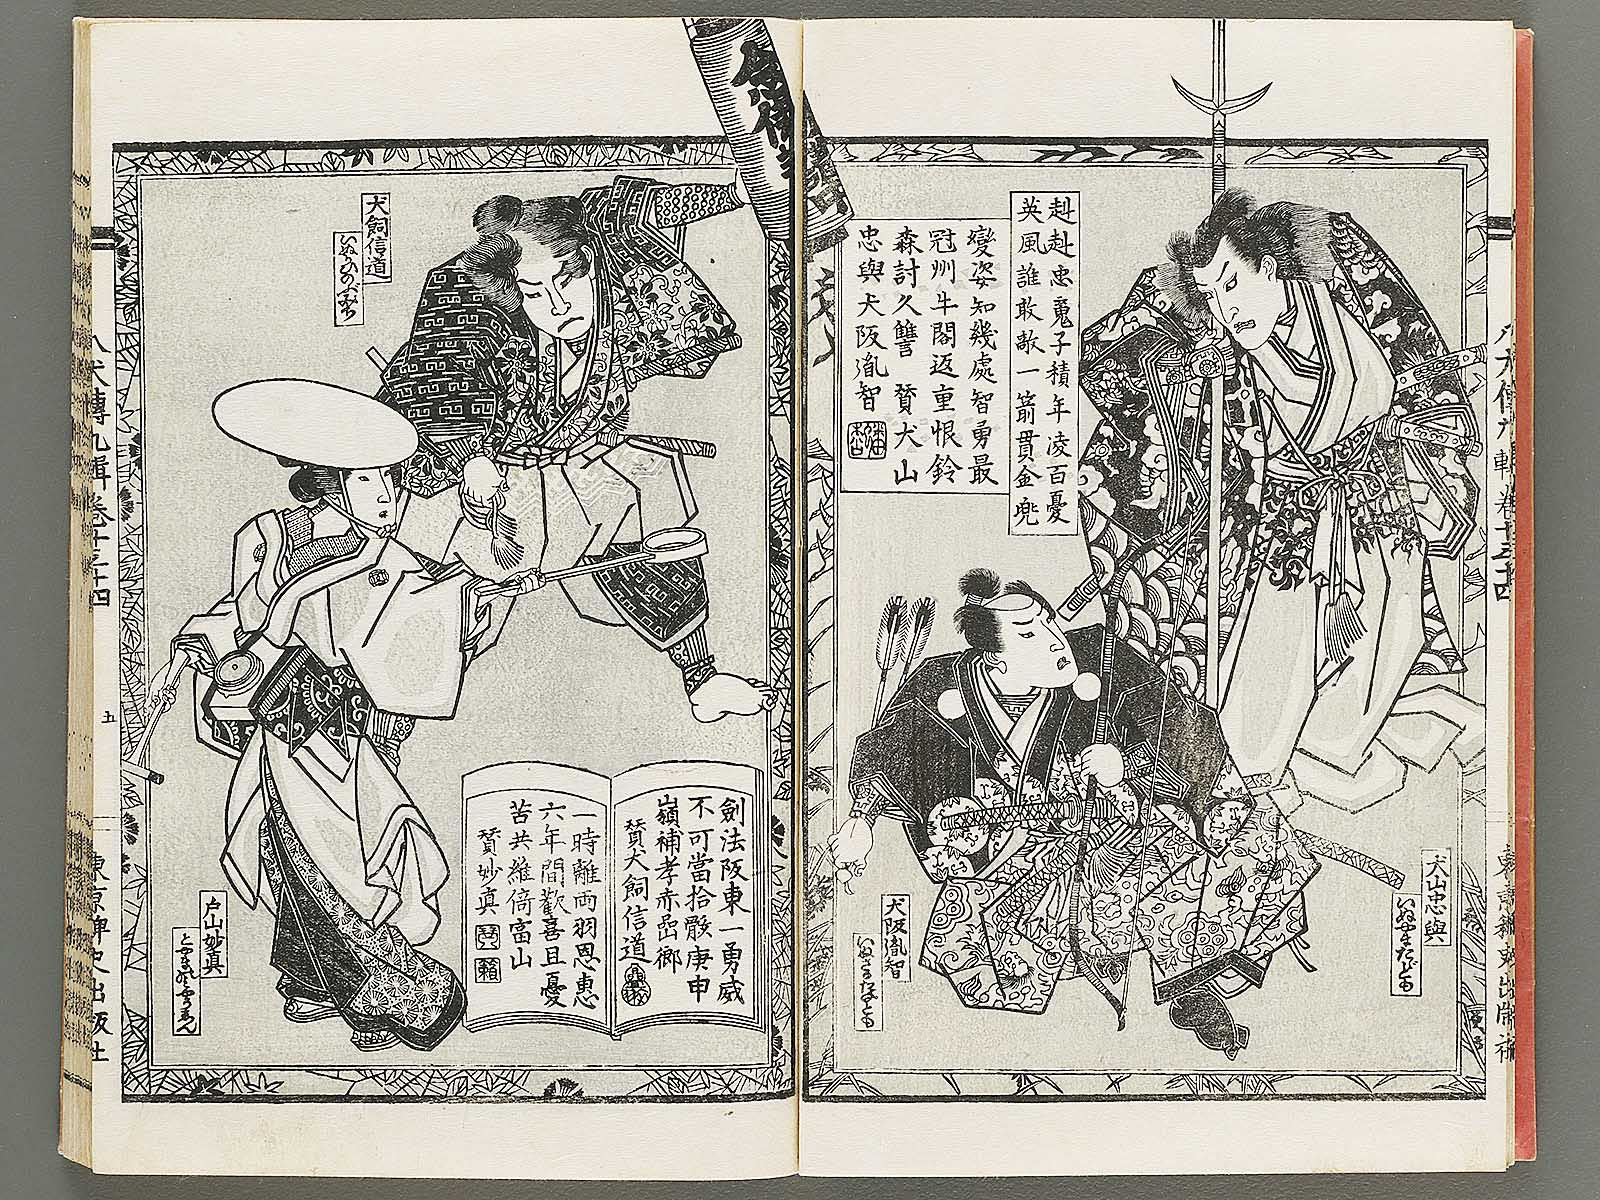 赳赳忠魂子積年凌百憂
英風誰敢敵一箭貫金兜
變姿知幾處智勇最
冠州牛閣返重恨鈴
森討久讐 賛犬山
忠與犬阪胤智
犬山忠與
いぬやまたゞとも
犬阪胤智
いぬさかたねとも
犬飼信道
いぬかひのぶみち
劍法阪東一勇威
不可當拾骸庚申
嶺補孝赤嵒鄉
賛犬飼信道
一時離両羽恩惠
六年間歡喜且憂
苦共維倚富山
賛妙真
戸山妙真
とやまめうしん
八犬傳九輯卷十三十四
五
東京稗史出版社